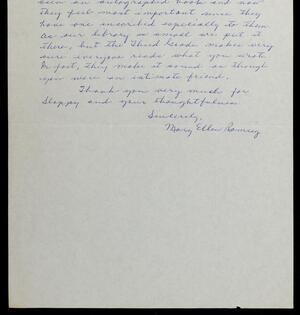 seen an autographed book and now
they feel most important since they
have one inscribed especially to them.
As our library is small we put it
there, but the Third Grade makes very
sure everyone reads what you wrote.
In fact, they make it sound as though
you were an intimate friend.
Thank you very much for
Sloppy and your thoughtfulness.
Sincerely,
Mary Ellen Ramsey